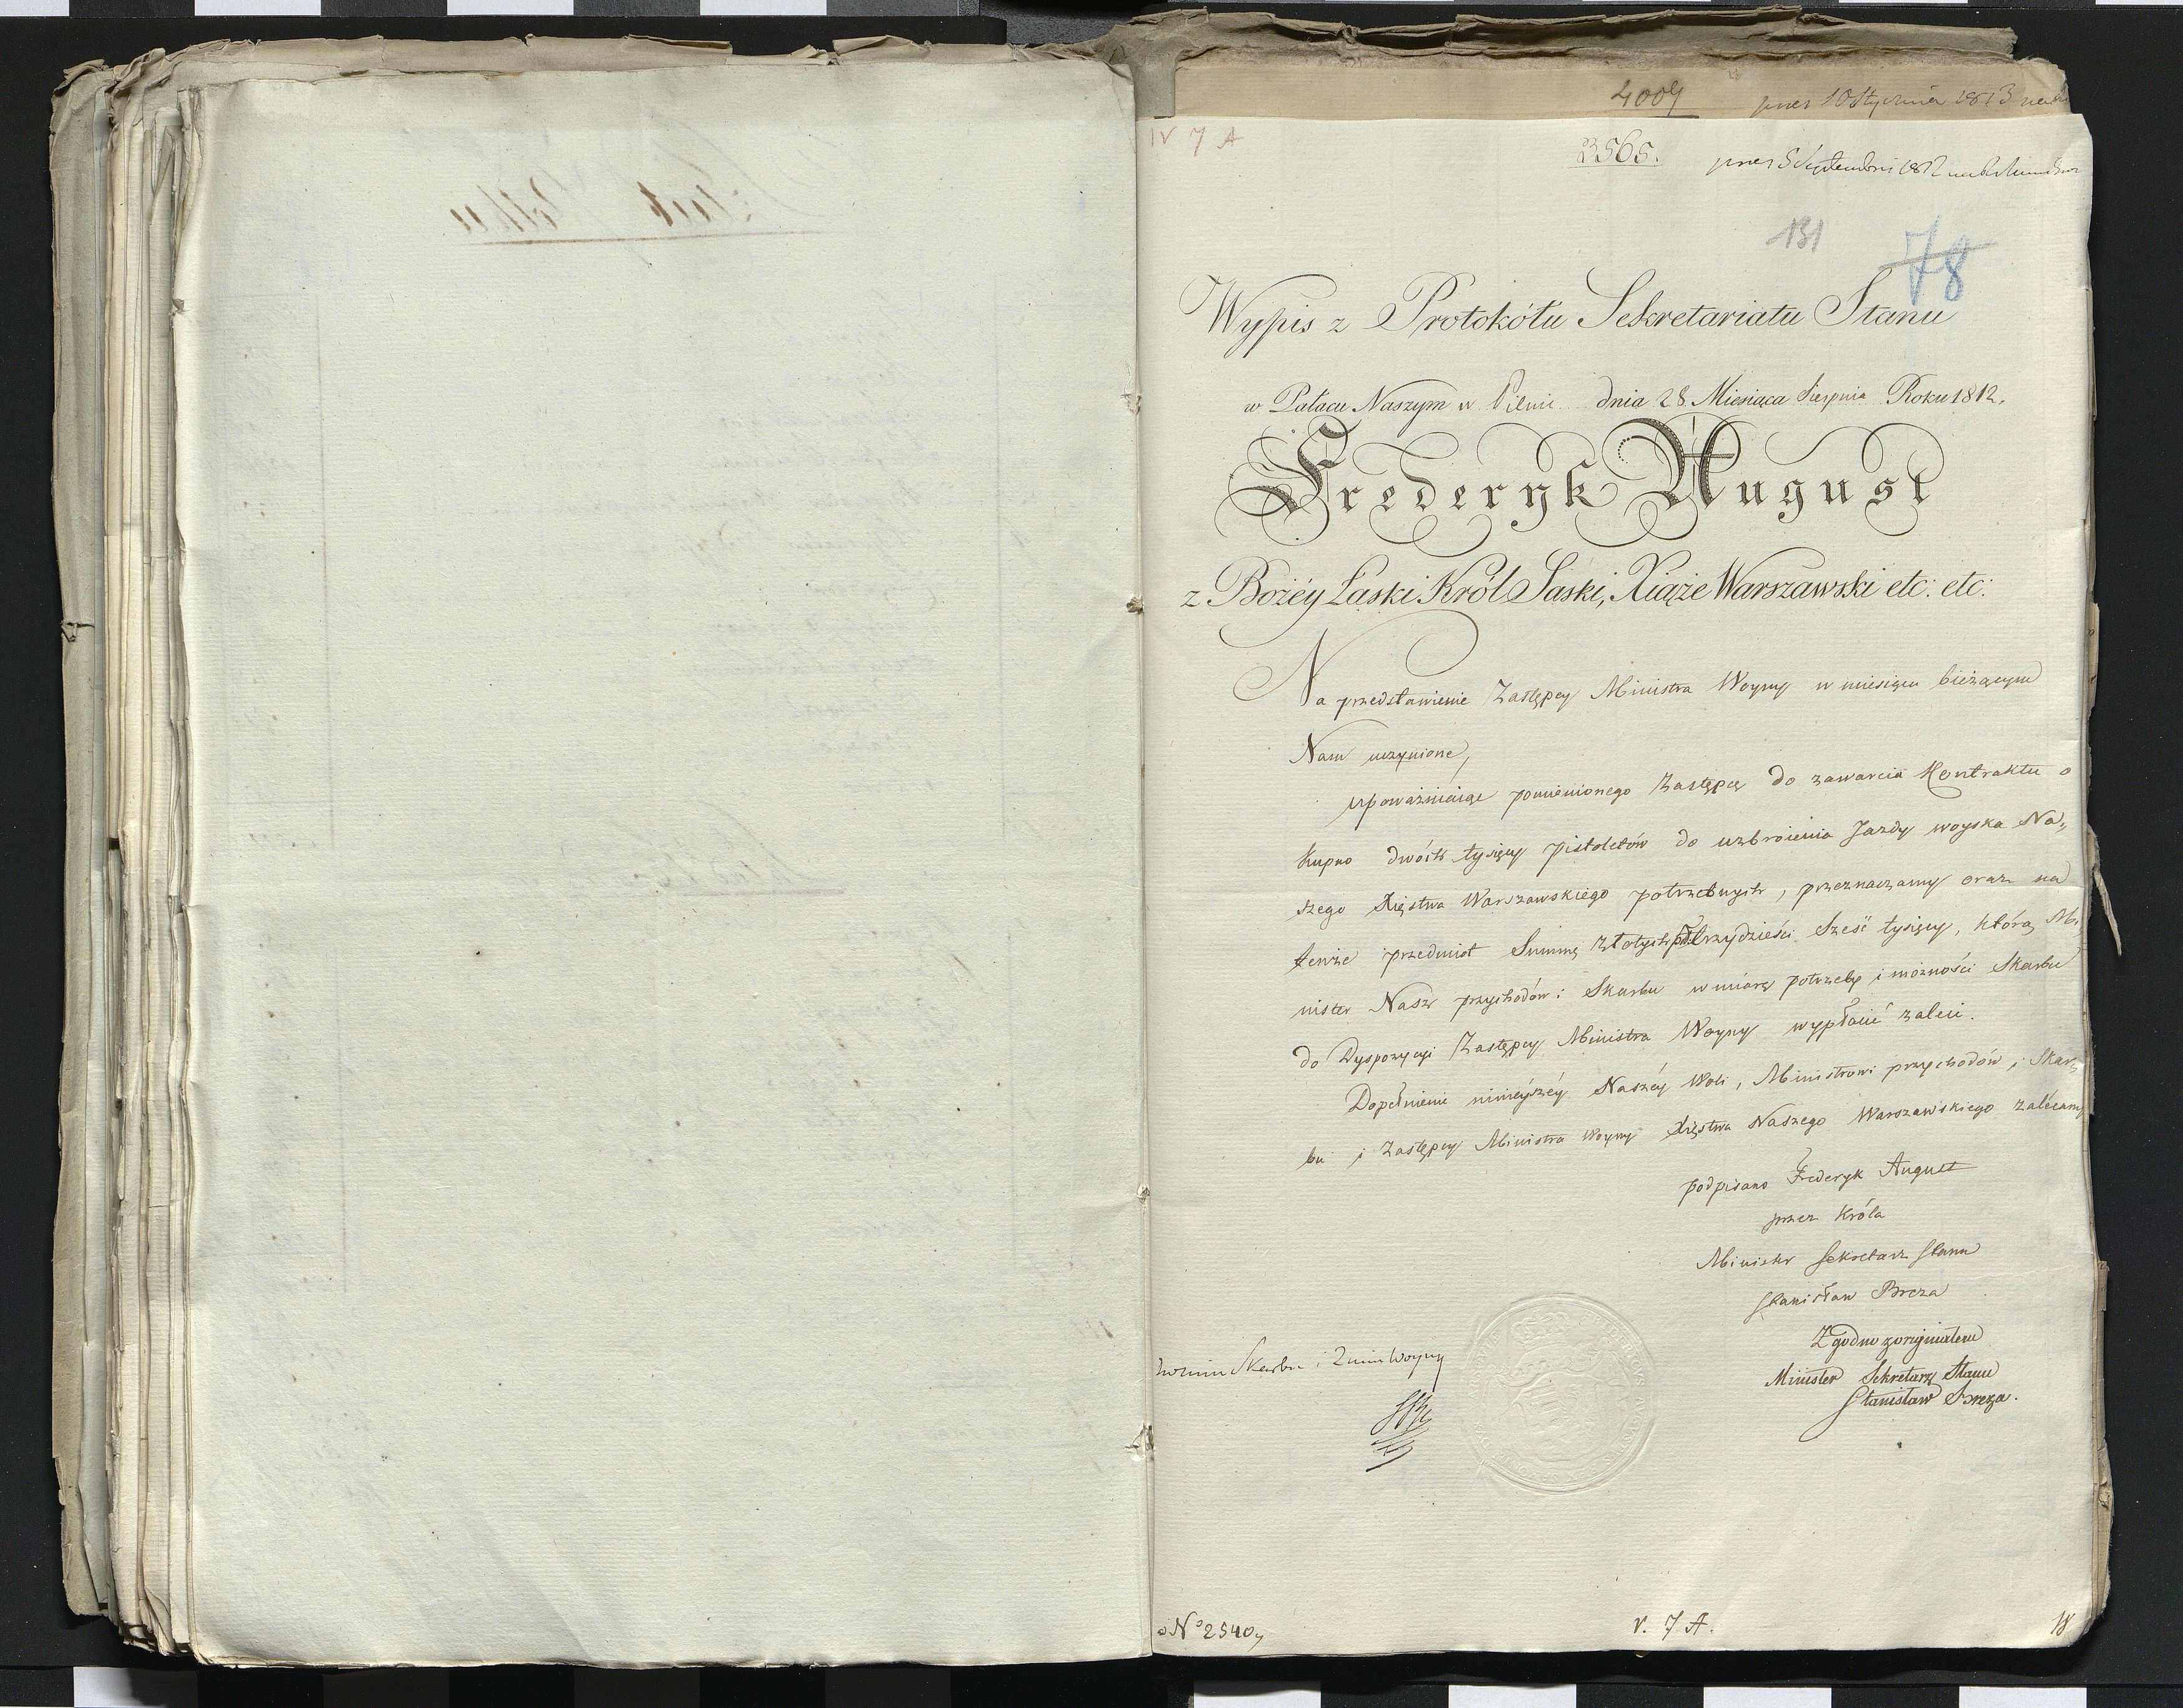 4009 pres 10 Stycznia 1813
IV 7 A
3565. pres 5 Septembris 1812
131
78
Wypis z Protokółu Sekretariatu Stanu
w Pałacu Naszym w Pilnic dnia 28 Miesiąca Sierpnia Roku 1812.
Frederyk August
z Bożéy Łaski Król Saski, Xiąże Warszawski etc: etc:
Na przedstawienie Zastępcy Ministra Woyny w miesiącu bieżącym
Nam uczynione,
upoważniaiąc pomienionego Zastępcę do zawarcia Kontraktu o
Kupno dwóch tysięcy pistoletów do uzbroienia Jazdy woyska Na„
szego Xięstwa Warszawskiego potrzebnych, przeznaczamy oraz na
tenże przedmiot Summę złotych pol: trzydzieści sześć tysięcy, którą Mi
nister Nasz przychodów i Skarbu w miarę potrzeby i możności Skarbu
do Dyspozycyi Zastępcy Ministra Woyny wypłacić zaleci.
Dopełnienie ninieyszéy Naszéy Woli, Ministrowi przychodów i Skar„
bu i Zastępcy Ministra Woyny Xięstwa Naszego Warszawskiego zalecamy
podpisano Frederyk August
przez Króla
Minister Sekretarz Stanu
Stanisław Breza
Zgodno z oryginałem
Minister Sekretarz Stanu
Stanisław Breza.
Skarbu i Zmin Woyny
No 2540,
V. 7 A.